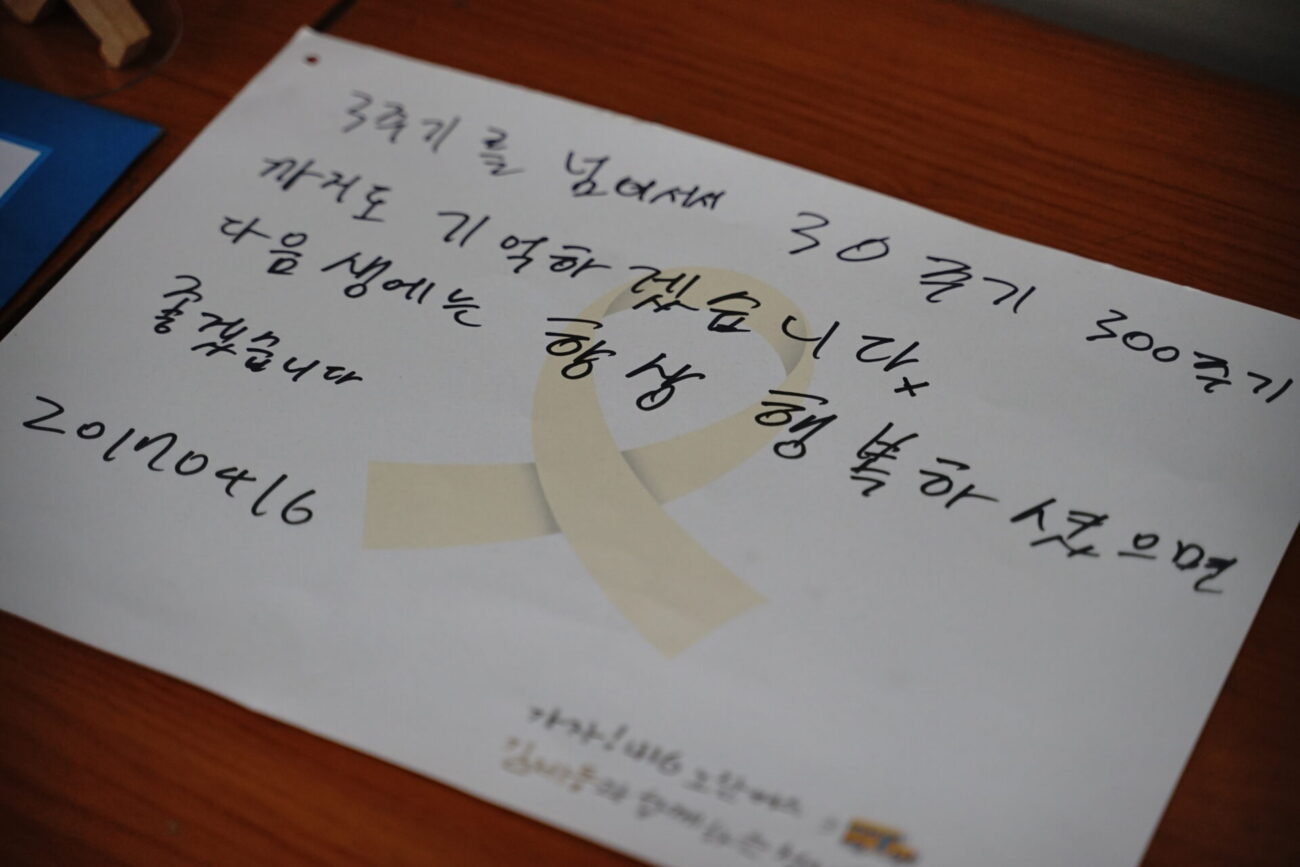 3주기를 넘어서서 30주기 300주기
까지도 기억하겠습니다.
다음 생에는 항상 행복하셨으면
좋겠습니다
20170416
가자! 노란버스
함께하는